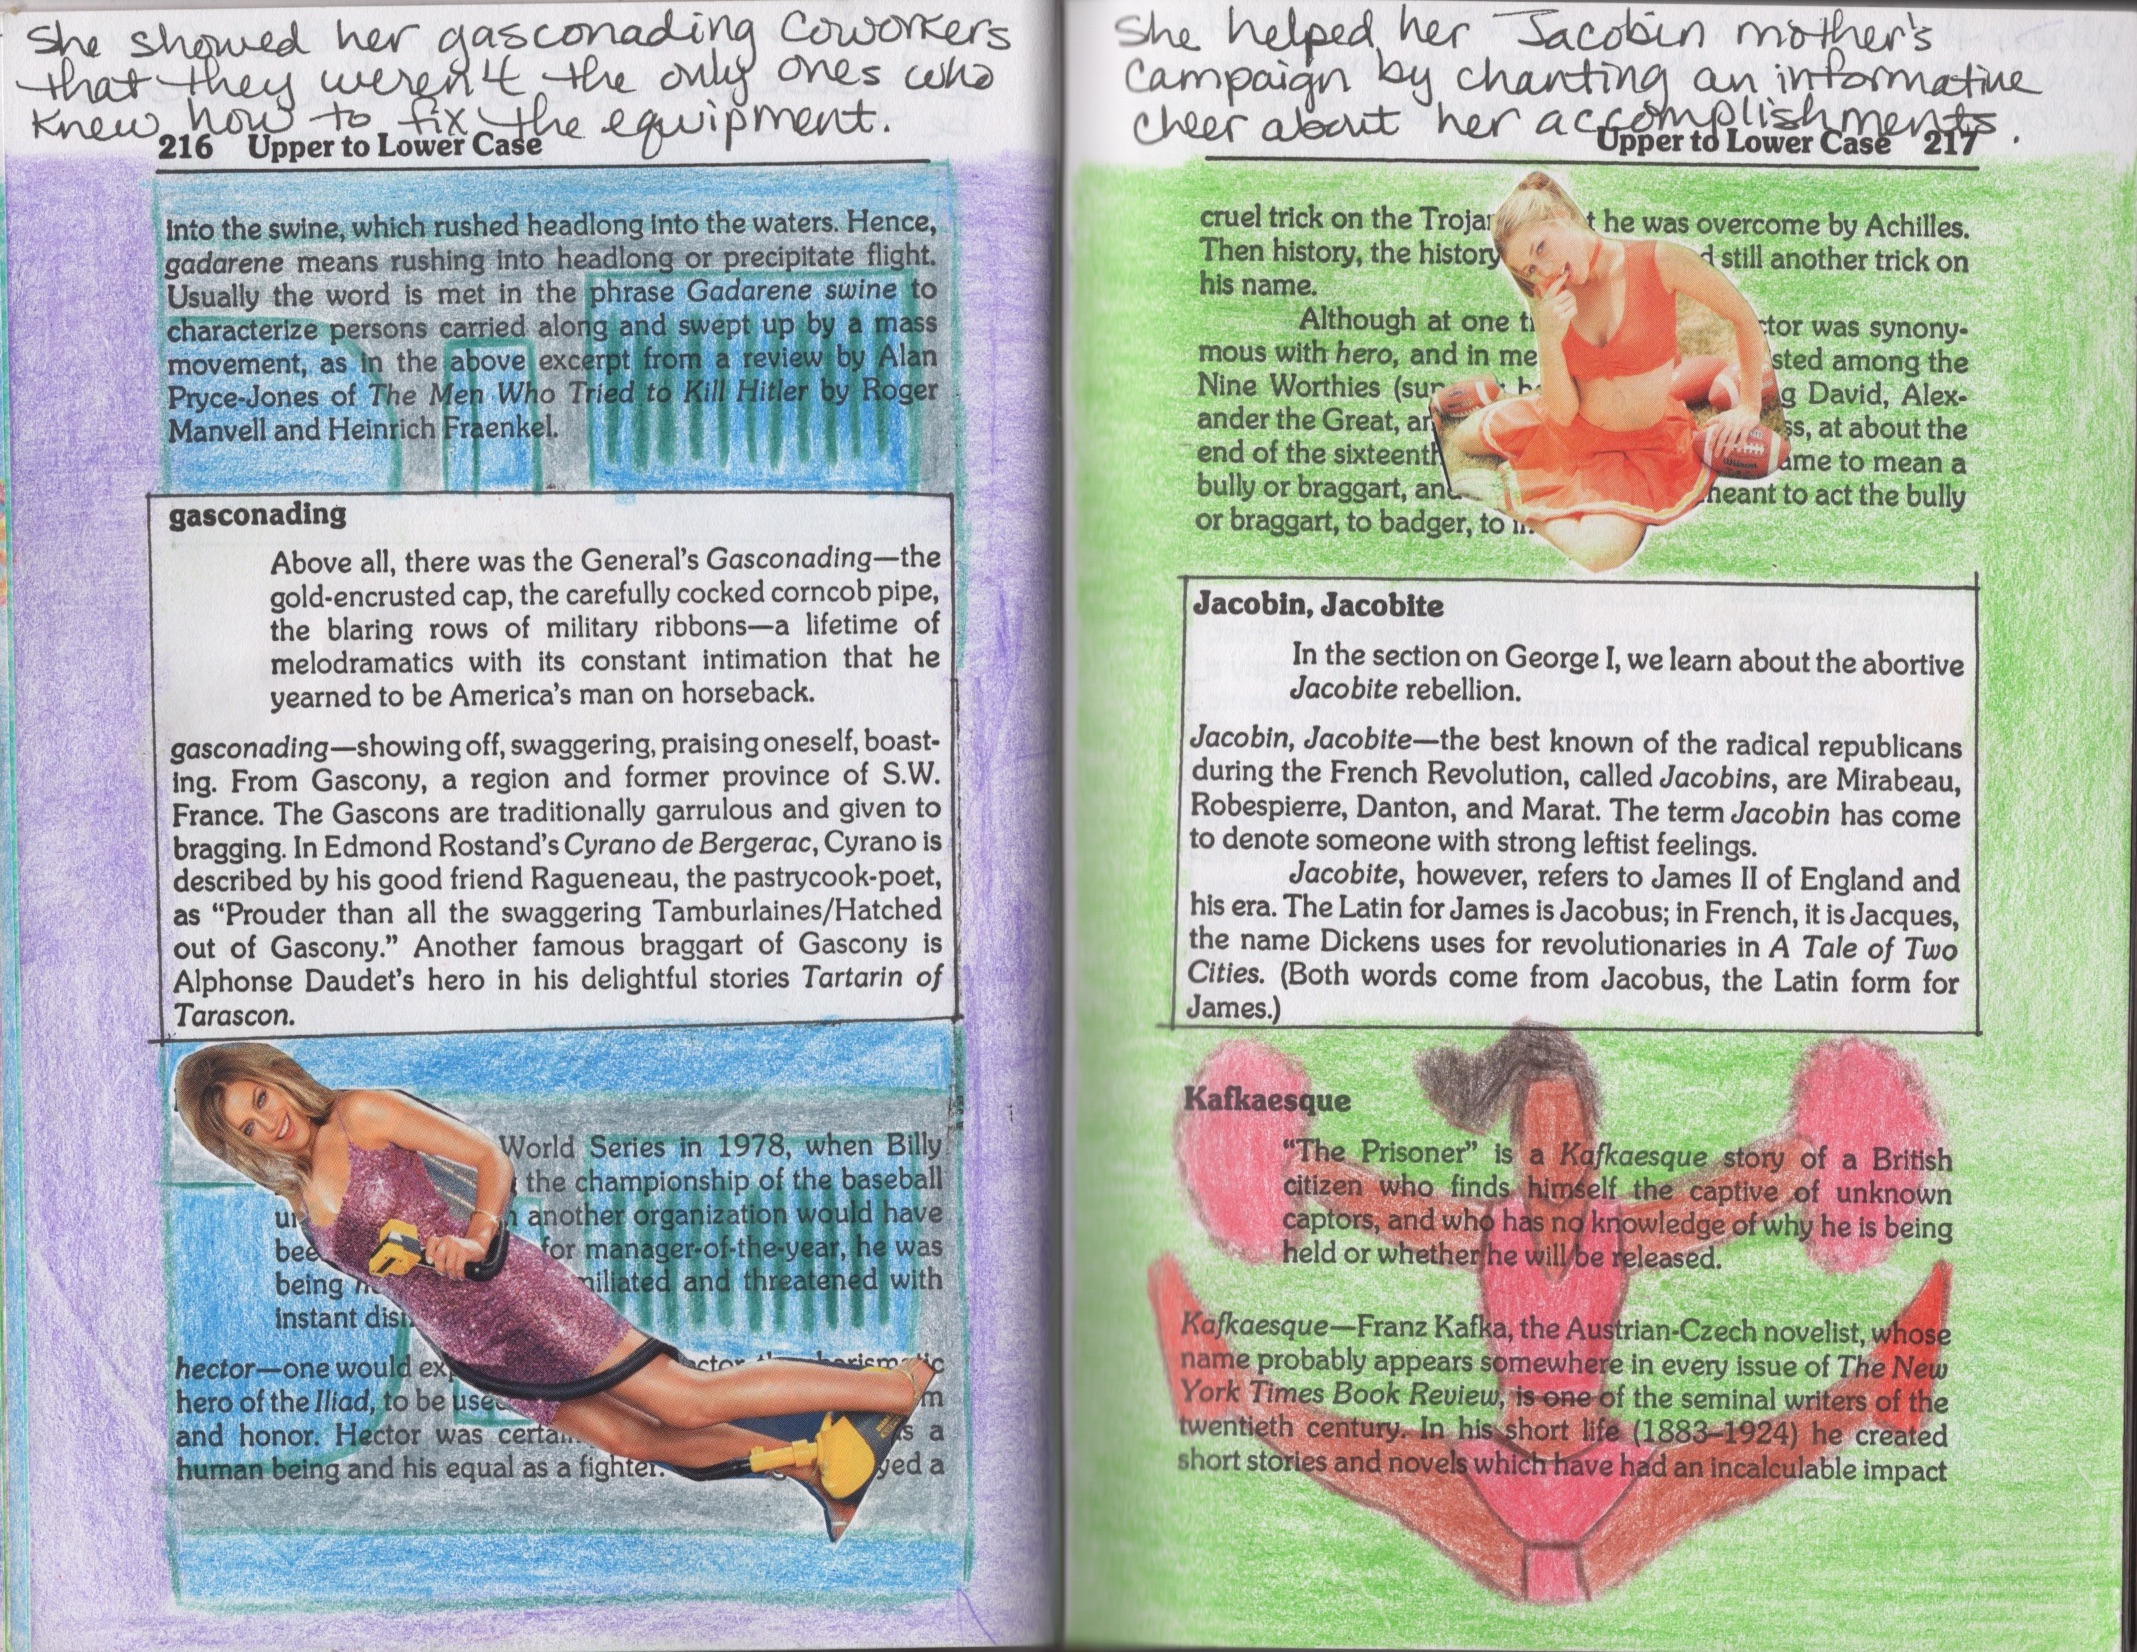 She showed her gasconading coworkers
that they weren't the only ones who
knew how to fix the equipment.
216 Upper to Lower Case
into the swine, which rushed headlong into the waters. Hence,
gadarene means rushing into headlong or precipitate flight.
Usually the word is met in the phrase Gadarene swine to
characterize persons carried along and swept up by a mass
movement, as in the above excerpt from a review by Alan
Pryce-Jones of The Men Who Tried to Kill Hitler by Roger
Manvell and Heinrich Fraenkel.
gasconading
Above all, there was the General's Gasconading—the
gold-encrusted cap, the carefully cocked corncob pipe,
the blaring rows of military ribbons—a lifetime of
melodramatics with its constant intimation that he
yearned to be America's man on horseback.
gasconading—showing off, swaggering, praising oneself, boast-
ing. From Gascony, a region and former province of S.W.
France. The Gascons are traditionally garrulous and given to
bragging. In Edmond Rostand's Cyrano de Bergerac, Cyrano is
described by his good friend Ragueneau, the pastrycook-poet,
as “Prouder than all the swaggering Tamburlaines/Hatched
out of Gascony.” Another famous braggart of Gascony is
Alphonse Daudet's hero in his delightful stories Tartarin of
Tarascon.
World Series in 1978, when Billy
the championship of the baseball
another organization would have
for manager-of-the-year, he was
being and threatened with
instant
hector—one would
hero of the Iliad, to be
and honor. Hector was a
human being and his equal as a fighter. a
She helped her Jacobin mother's
campaign by chanting an informative
cheer about her accomplishments.
Upper to Lower Case 217
cruel trick on the he was overcome by Achilles.
Then history, the history still another trick on
his name.
Although at one was synony-
mous with hero, and in among the
Nine Worthies David, Alex-
ander the Great, at about the
end of the to mean a
bully or braggart, to act the bully
or braggart, to badger, to
Jacobin, Jacobite
In the section on George I, we learn about the abortive
Jacobite rebellion.
Jacobin, Jacobite—the best known of the radical republicans
during the French Revolution, called Jacobins, are Mirabeau,
Robespierre, Danton, and Marat. The term Jacobin has come
to denote someone with strong leftist feelings.
Jacobite, however, refers to James II of England and
his era. The Latin for James is Jacobus; in French, it is Jacques,
the name Dickens uses for revolutionaries in A Tale of Two
Cities. (Both words come from Jacobus, the Latin form for
James.)
Kafkaesque
“The Prisoner” is a Kafkaesque story of a British
citizen who finds himself the captive of unknown
captors, and who has no knowledge of why he is being
held or whether he will be released.
Kafkaesque—Franz Kafka, the Austrian-Czech novelist, whose
name probably appears somewhere in every issue of The New
York Times Book Review, is one of the seminal writers of the
twentieth century. In his short life (1883–1924) he created
short stories and novels which have had an incalculable impact